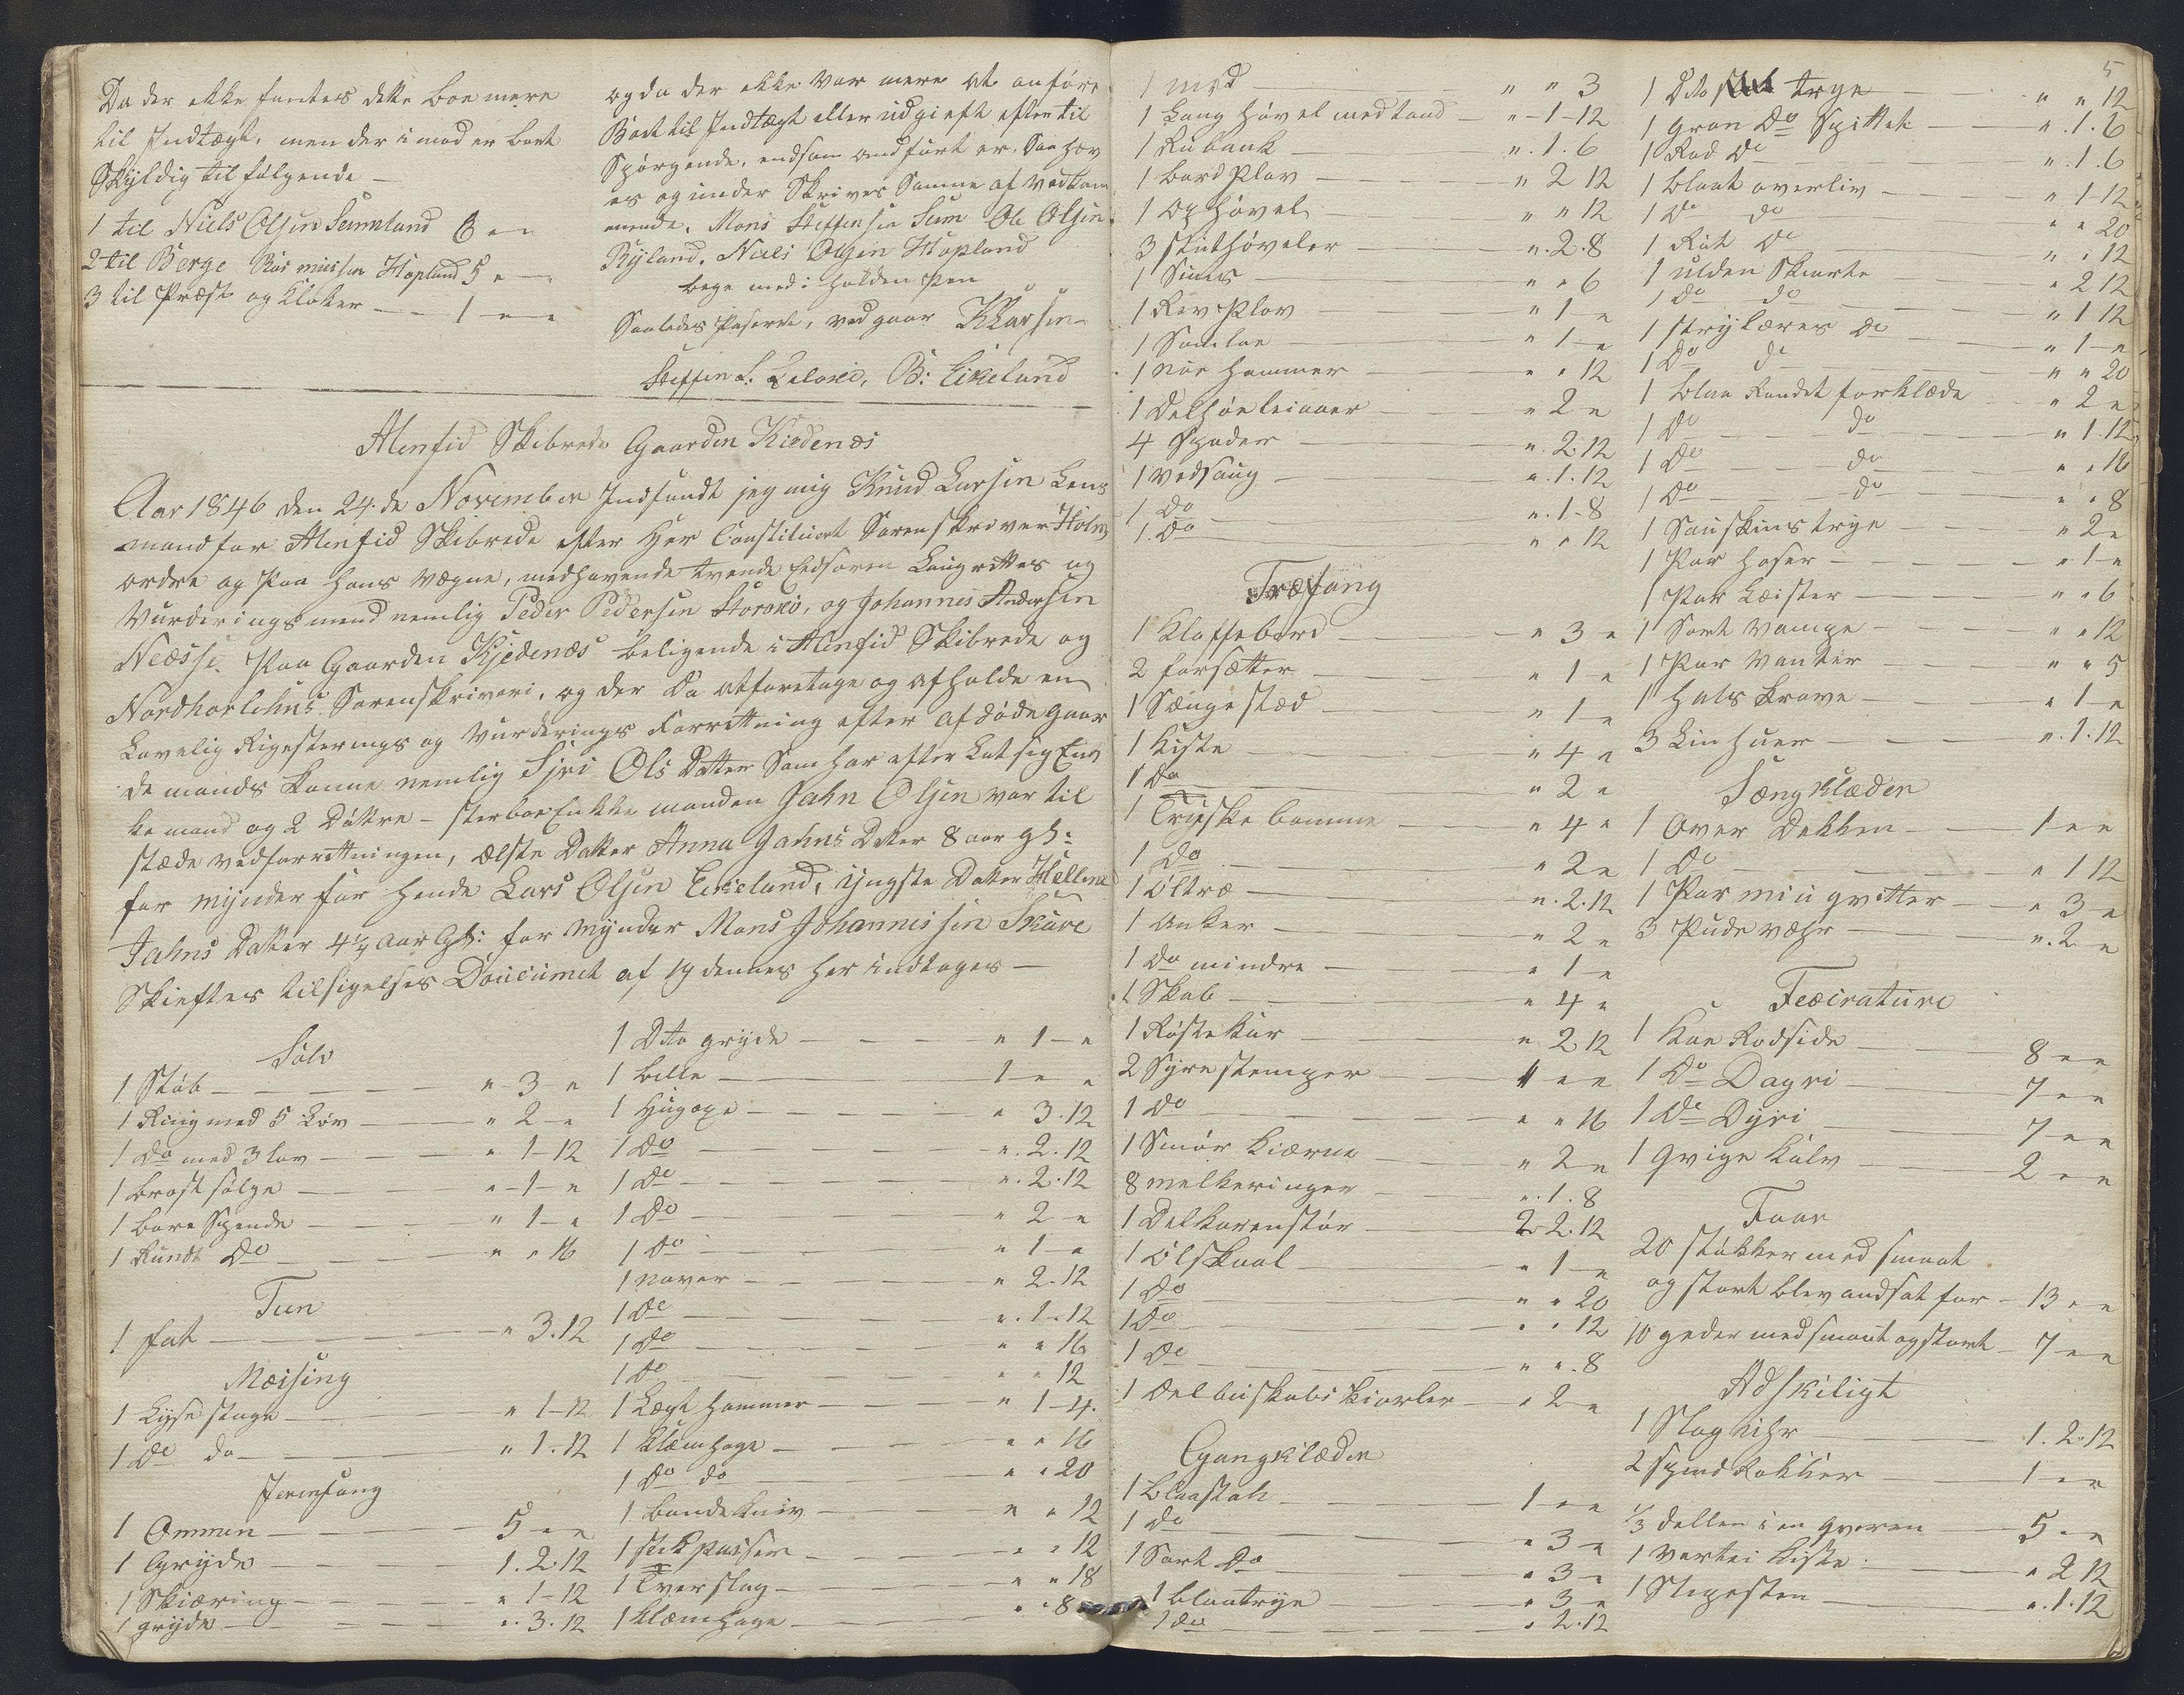 Da der ekke fantes dette boe mere
til Indtægt, men der i mod er boet
Skyldig til følgende -
1 til Niels Olsen Seimland 6 " "
2 til Berge Rasmussen Hopland 5 " "
3 til Præst og Kloker - 1 " "
og da der ekke var mere at anføre
Boet til Indtægt eller udgieft efter til
Spørgende, endsom andført er. Saa hæv
es og under Skrives Samme af vedkom
mende. Mons Steffensen Seim Ole Olsen
Ryland. Niels Olsen Hopland
bege med i holden Pen
Saaledes Paserede, vedgaar KLarsen
Steffen S. B: Eikeland
Alenfid Skibrede Gaarden Kiedenæs
Aar 1846 den 24de November Indfandt jeg mig Knud Larsen Lens
mand for Alenfid Skibrede efter Her Constitueret Sorenskriver Holm
ordre og Paa hans vegne, medhavende tvende Eedsoren Laugrettes og
Vurderings mend nemlig Peder Pedersen Storoxø, og Johannes Andersen
Neæsse. Paa Gaarden Kjedenæs beligende i Alenfid Skibrede og
Nordhorlehns Sorenskriveri, og der Da atforetage og afholde en
Lovelig Rigesterings og Vurderings Forrettning efter afdøde Gaar
de mands konne nemlig Siri Ols Datter Som har efter Lat sig Enn
ke mand og 2 Døttre - sterboe Enkke manden Jahn Olsen var til
stæde ved forrettningen, ælste Datter Anna Jahns Datter 8 aar gl:
for mynder for hende Lars Olsen Eikeland, yngste Datter Hellene
Jahns Datter 4½ Aar Gl: for mynder Mons Johannessen Skare
Skieftes tilsigelses Doucumet af 19 dennes her indtages -
Sølv
1 Støb - " 3 "
1 Ring med 5 Løv - " 2 "
1 Do med 3 lov - " 1-12
1 brøst sølge - " 1 "
1 bore Spende - " 1 "
1 Rundt Do - " " 16
Tin
1 fat - " 3.12
Mæising
1 Lyse stage - " 1-12
1 Do do - " 1.12
Jernfang
1 Ommen - 5 " "
1 Gryde - 1.2.12
1 Skiæring - " 1-12
1 gryde - " 3.12
1 Dto gryde - " 1 "
1 bille - 1 " "
1 Hugøxe - " 3.12
1 Do - " 2.12
1 Do - " 2.12
1 Do - " 2 "
1 Do - " 1 "
1 naver - " 2.12
1 Do - " 1.12
1 Do - " " 16
1 Do - " " 12
1 Lægt hammer - " 1-4
1 klæmhage - " " 16
1 Do do - " " 20
1 bandekniv - " " 12
1 stikpasser - " " 12
1 Tverslag - " " 18
1 klæmhage - " " 8
1 med - " " 3
1 Lang høvel med tand - " 1-12
1 Rubank - " 1.6
1 bord Plov - " 2 12
1 Ophøvel - " " 12
3 sluthøveler - " 2.8
1 Sims - " " 6
1 Rev Plov - " 1 "
1 - " 1 "
1 hammer - " " 12
1 - " 2 "
4 Spader - " 2.12
1 vedsaug - " 1.12
1 Do - " 1-8
1 Do - " " 12
Træfang
1 Klaffebord - " 3 "
2 forsætter - " 1 "
1 Sængestæd - " 1 "
1 Kiste - " 4 "
1 Do - " 2 "
1 - " 4 "
1 Do - " 2 "
1 Øltræ - " 2.12
1 Anker - " 2 "
1 Do mindre - " 1 "
1 Skab - " 4 "
1 Røstekar - " 2 12
2 Syrestemper - 1 " "
1 Do - " " 16
1 Smør kiærne - " 2 "
8 melkeringer - " 1.8
1 - 2-2.12
1 Ølskaal - " 1 "
1 Do - " " 20
1 Do - " " 12
1 Do - " " 8
1 Del buskabs kiorler - " 2 "
Gangklæder
1 blaastak - 1 " "
1 do - " 3 "
1 Sort Do - " 3 "
1 blaatrye - " 3 "
1 do - " 2.12
5
1 Dto trye - " " 12
1 Grøn Do - " 1.6
1 Rød Do - " 1.6
1 blaat overliv - " 1-12
1 Do do - " " 20
1 Rùt Do - " " 12
1 ulden Skiorte - " 2 12
1 do do - " 1 12
1 strylæres Do - " 1 "
1 Do do - " " 20
1 blaa Randet forklæde - " 2 "
1 Do - do - " 1.12
1 Do - do - " " 16
1 Do - do - " " 8
1 Sauskins trye - " 2 "
1 Par hoser - " 1 "
1 Par Leister - " " 6
1 Sort Vampe - " " 12
1 Par vanter - " " 5
1 Hals krave - " 1 "
3 Linhuer - " 1.12
Sængklæder
1 Over Dekken - 1 " "
1 Do - " 1 12
1 Par - " 3 "
3 Pude væhr - " 2 "
Feæcrature
1 Kue Rodside - 8 " "
1 Do Dagri - 7 " "
1 Do Dyri - 7 " "
1 Qvige kalv - 2 " "
Faar
20 støkker med smaat
og stort blev andsat for - 13 " "
10 geder med smaat og stort - 7 " "
Adskiligt
1 Slaguhr - 1.2.12
2 spind Rokker - 1 " "
1/3 dellen i en Qveren - 5 " "
1 kiste - " 2 12
1 Slepesten - " 1.12